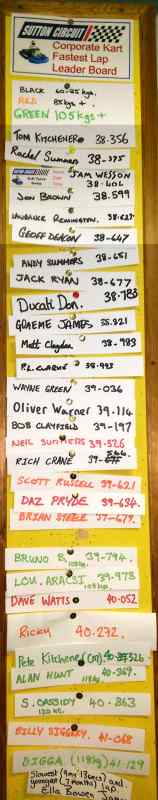 SUTTON CIRCUIT
Corporate Kart
Fastest Lap
Leader Board
BLACK 60-85kgs.
RED 85kgs +.
GREEN 105kgs+
TOM KITCHENER 38-356
Rachel Summers 38-375
SAM WESSON
38-402
JON BROWN 38-599
LAURANCE REMINGTON. 38-627
GEOFF DEACON 38-647
ANDY SUMMERS 38-651
JACK RYAN 38-677
Ducati Don. 38-783
GRAEME JAMES 38.821
Matt Clayton 38-983
P.L. CLARKE 38-993
WAYNE GREEN 39-036
Oliver Warner 39-114
BOB CLAYFIELD 39-197
NEIL SUMMERS 39-526
RICH CRANE 39-566
SCOTT RUSSELL 39-621
DAZ PRYDE 39-634
BRIAN STEELE 39-679
BRUNO B. 39-794.
LOU. ARACSI. 39-978
DAVE WATTS 40-052
RICKY 40-272.
Pete Kitchener (Cm) 40-326
ALAN HUNT 40-369.
S. CASSIDY 40-863
BILLY DIGGERY. 41-068
DIGGA (118kg) 41-129
Slowest (4min 13secs) and
younger (7 months) Lap
Ella Bowen